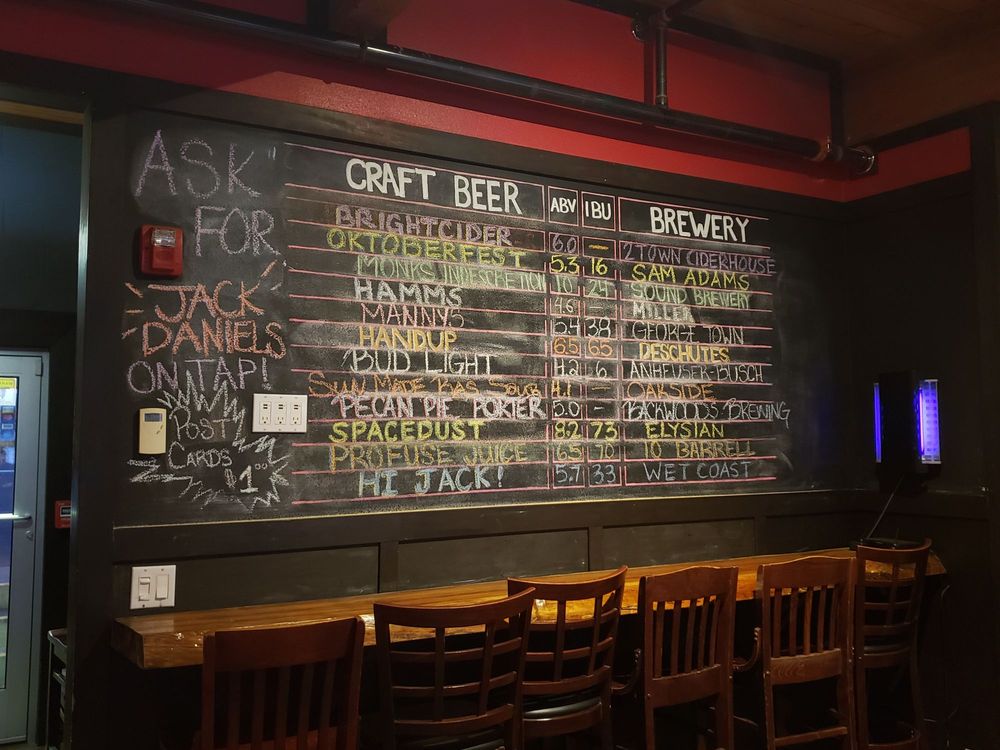 ASK
FOR
JACK
DANIELS
ON TAP!
POST
CARDS
$1.00
CRAFT BEER ABV IBU BREWERY
BRIGHTCIDER 6.0 — 2 TOWN CIDERHOUSE
OKTOBERFEST 5.3 16 SAM ADAMS
MONKS INDISCRETION 10 24 SOUND BREWERY
HAMMS 4.6 — MILLER
MANNYS 5.4 38 GEORGE TOWN
HANDUP 6.5 65 DESCHUTES
BUD LIGHT 4.2 6 ANHEUSER-BUSCH
SUN MADE RAS SOUR 4.1 — OAKSIDE
PECAN PIE PORTER 5.0 — BACKWOODS BREWING
SPACEDUST 8.2 73 ELYSIAN
PROFUSE JUICE 6.5 70 10 BARRELL
HI JACK! 5.7 33 WET COAST